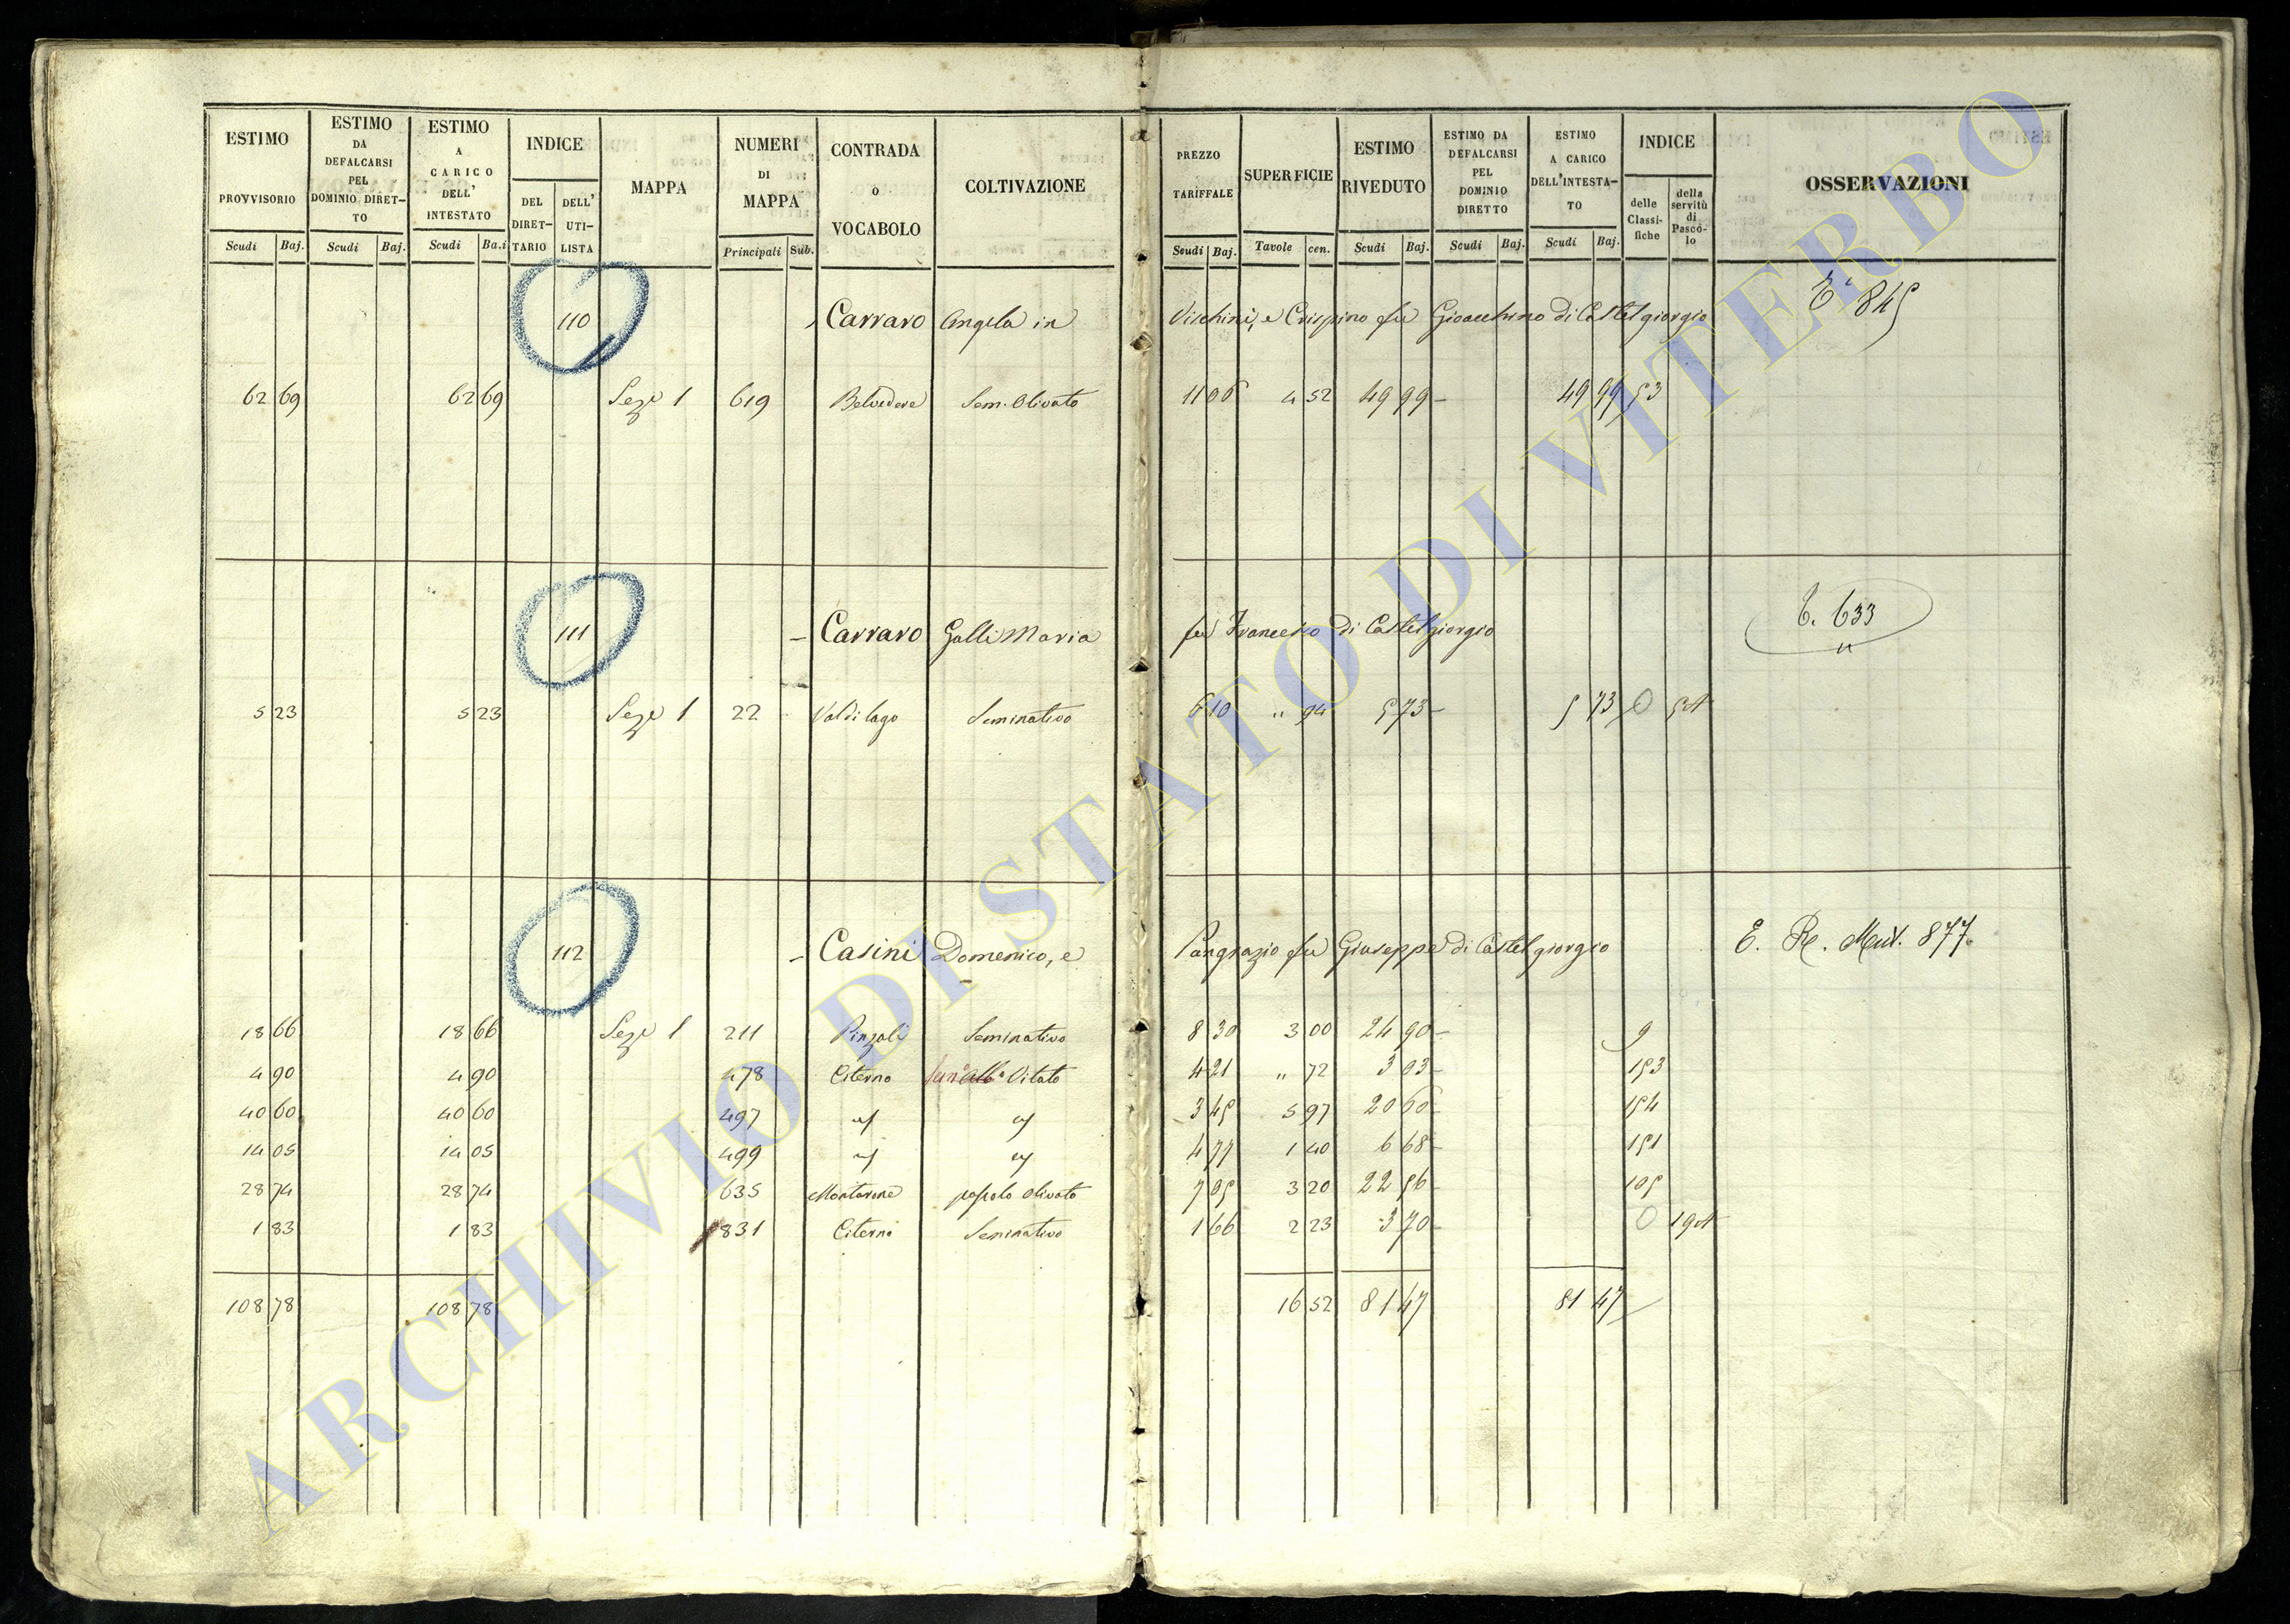 ESTIMO PROVVISORIO Scudi Baj.
ESTIMO DA DEFALCARSI PEL DOMINIO DIRETTO Scudi Baj.
ESTIMO A CARICO DELL' INTESTATO Scudi Ba.i
INDICE DEL DIRETTARIO DELL' UTILISTA
MAPPA
NUMERI DI MAPPA Principali Sub.
CONTRADA o VOCABOLO
COLTIVAZIONE
PREZZO TARIFFALE Scudi Baj.
SUPERFICIE Tavole cen.
ESTIMO RIVEDUTO Scudi Baj.
ESTIMO DA DEFALCARSI PEL DOMINIO DIRETTO Scudi Baj.
ESTIMO A CARICO DELL'INTESTATO Scudi Baj.
INDICE delle Classifiche della servitù di Pascolo
OSSERVAZIONI
110 Carraro Angela in Vischini, e Crispino fu Gioacchino di Castelgiorgio E 845
62 69 62 69 Seze 1 619 Belvedere Sem. Olivato 11 06 4 52 49 99 – 49 99 53
111 – Carraro Galli Maria fu Francesco di Castelgiorgio 633
5 23 5 23 Seze 1 22 Valdilago Seminativo 6 10 " 94 5 73 – 5 73 0 54
112 – Casini Domenico, e Pangrazio fu Giuseppe di Castelgiorgio E. Re. 877.
18 66 18 66 Seze 1 211 Pinzali Seminativo 8 30 3 00 24 90 – 9
4 90 4 90 478 Citerno Vitato 4 21 " 72 3 03 – 153
40 60 40 60 497 3 45 5 97 20 60 – 154
14 05 14 05 499 4 77 1 40 6 68 – 151
28 74 28 74 635 Montarone Olivato 7 05 3 20 22 56 – 105
1 83 1 83 831 Citerno Seminativo 1 66 2 23 3 70 – 0 194
108 78 108 78 16 52 81 47 81 47
ARCHIVIO DI STATO DI VITERBO